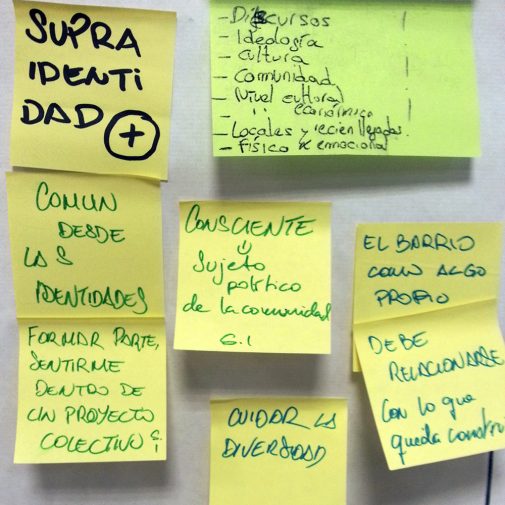 SUPRA
IDENTI
DAD +
- Discursos
- Ideología
- Cultura
- Comunidad
- Nivel cultural
- " económico
- Locales y recien llegadas
- Físico emocional
COMUN
DESDE
LAS
IDENTIDADES
FORMAR PARTE,
SENTIRME
DENTRO DE
UN PROYECTO
COLECTIVO
CONSCIENTE
=
Sujeto
político
de la comunidad
G.I
EL BARRIO
COMO ALGO
PROPIO
DEBE
RELACIONARSE
con lo que
queda constru
CUIDAR LA
DIVERSIDAD